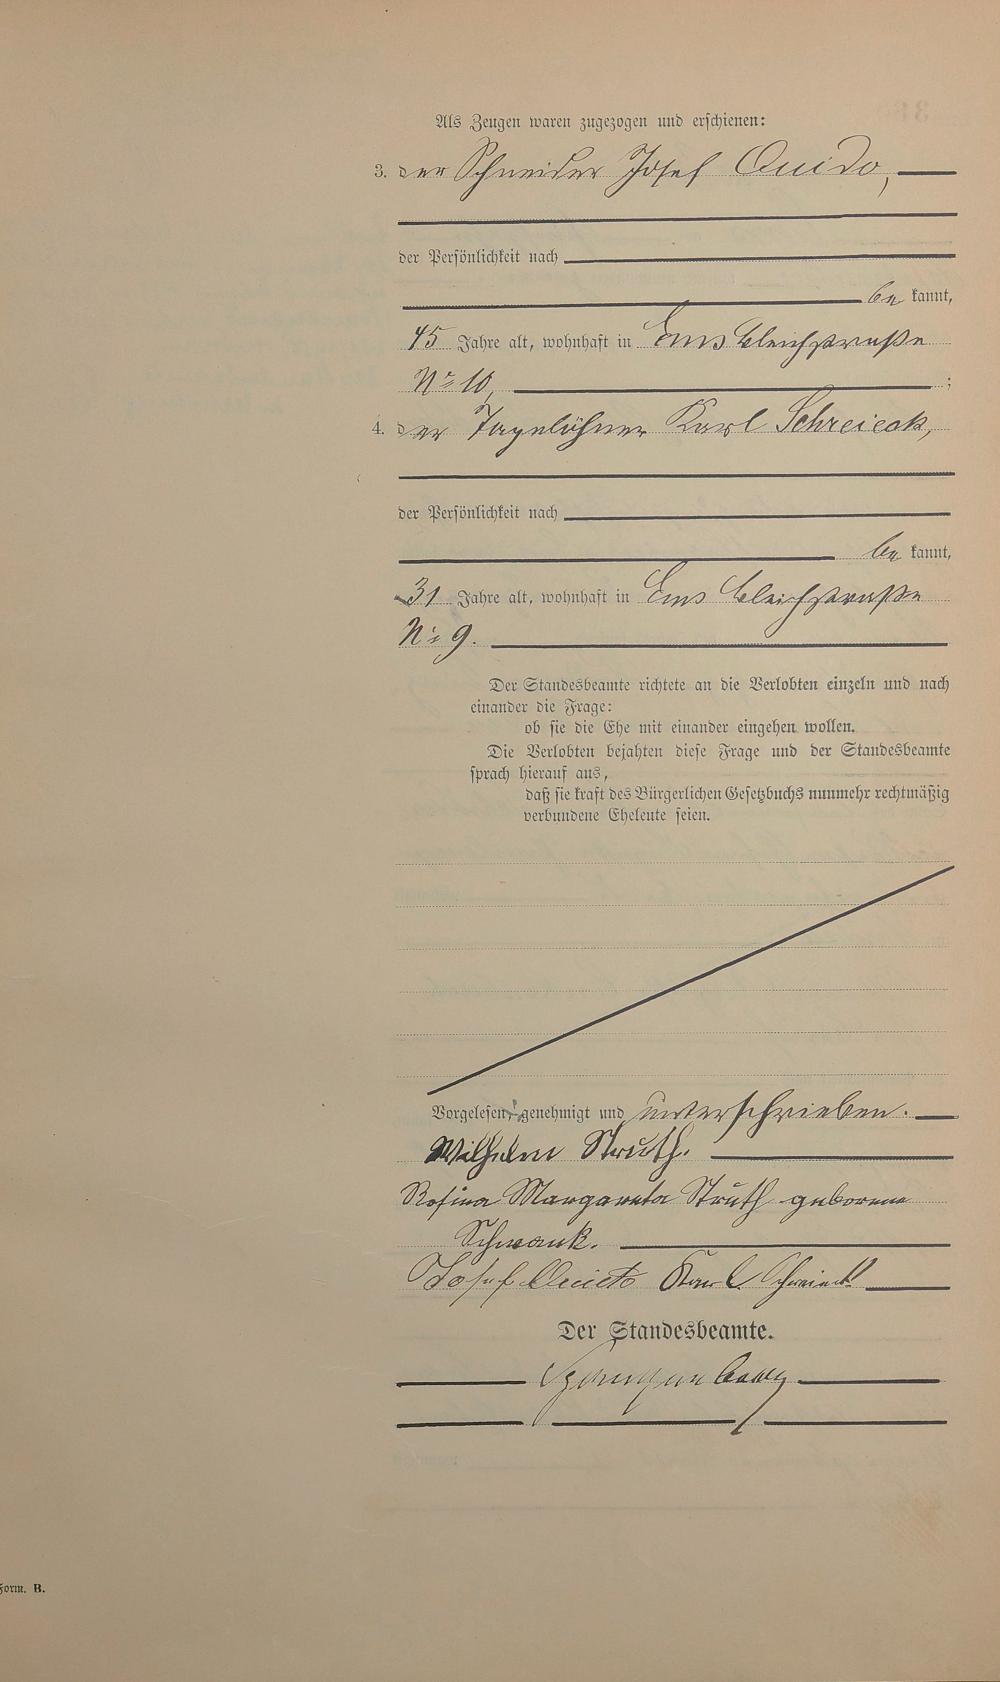 Als Zeugen waren zugezogen und erschienen:
3. der Schneider Josef Quido,
der Persönlichkeit nach
be kannt,
45 Jahre alt, wohnhaft in Ems Bleichstraße
No 10, ;
4. der Tagelöhner Karl Schreieck,
der Persönlichkeit nach
be kannt,
31 Jahre alt, wohnhaft in Ems Bleichstraße
No 9.
Der Standesbeamte richtete an die Verlobten einzeln und nach
einander die Frage:
ob sie die Ehe mit einander eingehen wollen.
Die Verlobten bejahten diese Frage und der Standesbeamte
sprach hierauf aus,
daß sie kraft des Bürgerlichen Gesetzbuchs nunmehr rechtmäßig
verbundene Eheleute seien.
Vorgelesen, genehmigt und unterschrieben.
Wilhelm Struth.
Rosina Margareta Struth geborene
Schwank.
Josef Quido Karl Schreieck
Der Standesbeamte.
Form. B.